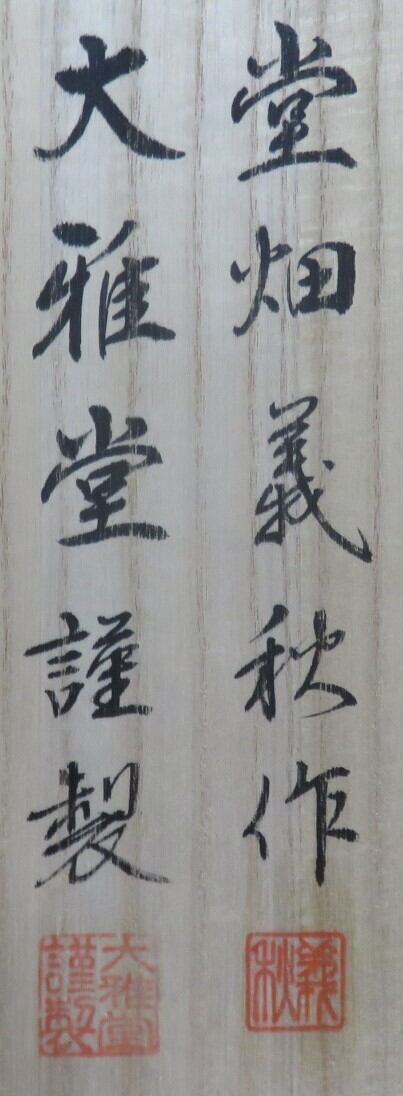 堂畑義秋作
大雅堂謹製
義秋
大雅堂
謹製